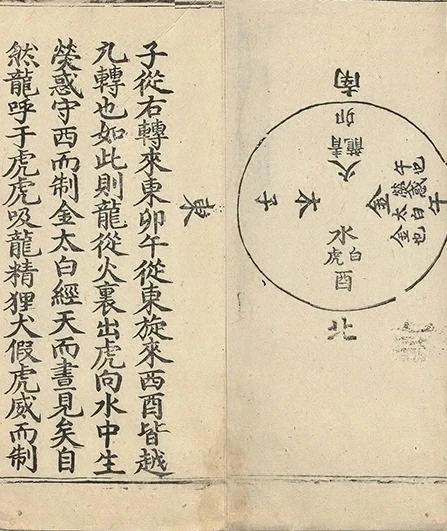 南
卯
青龍
火
午
金
木
子
東
午熒惑也
太白
金也
水
白虎
酉
北
子從右轉來東卯午從東旋來西酉皆越
九轉也如此則龍從火裏出虎向水中生
熒惑守西而制金太白經天而晝見矣自
然龍呼于虎虎吸龍精狸犬假虎威而制